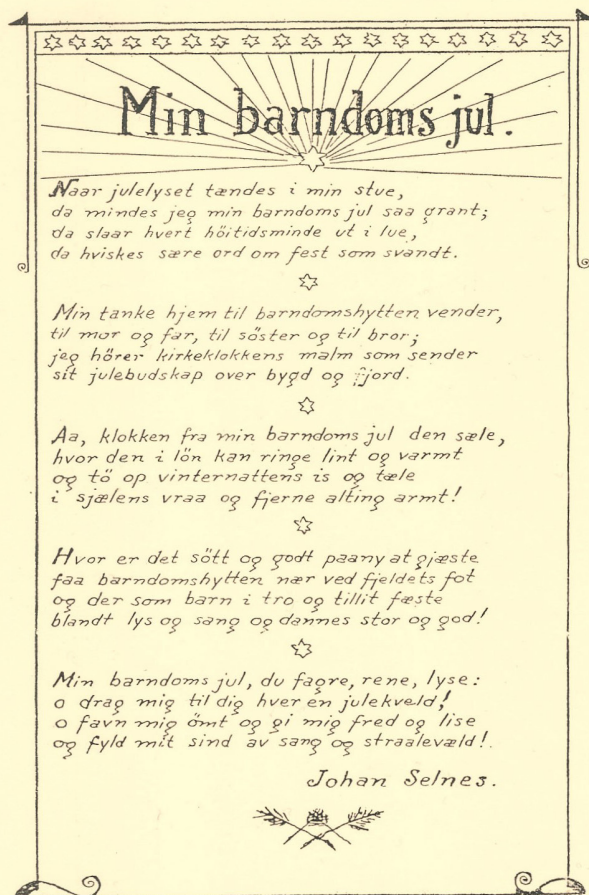 Min barndoms jul.
Naar julelyset tændes i min stue,
da mindes jeg min barndoms jul saa grant;
da slaar hvert höitidsminde ut i lue,
da hviskes sære ord om fest som svandt.
Min tanke hjem til barndomshytten vender,
til mor og far, til söster og til bror;
jeg hörer kirkeklokkens malm som sender
sit julebudskap over bygd og fjord.
Aa, klokken fra min barndoms jul den sæle,
hvor den i lön kan ringe lint og varmt
og tö op vinternattens is og tæle
i sjælens vraa og fjerne alting armt!
Hvor er det sött og godt paany at gjæste
faa barndomshytten nær ved fjeldets fot
og der som barn i tro og tillit fæste
blandt lys og sang og dannes stor og god!
Min barndoms jul, du fagre, rene, lyse:
o drag mig til dig hver en julekveld!
o favn mig ömt og gi mig fred og lise
og fyld mit sind av sang og straalevæld!
Johan Selnes.